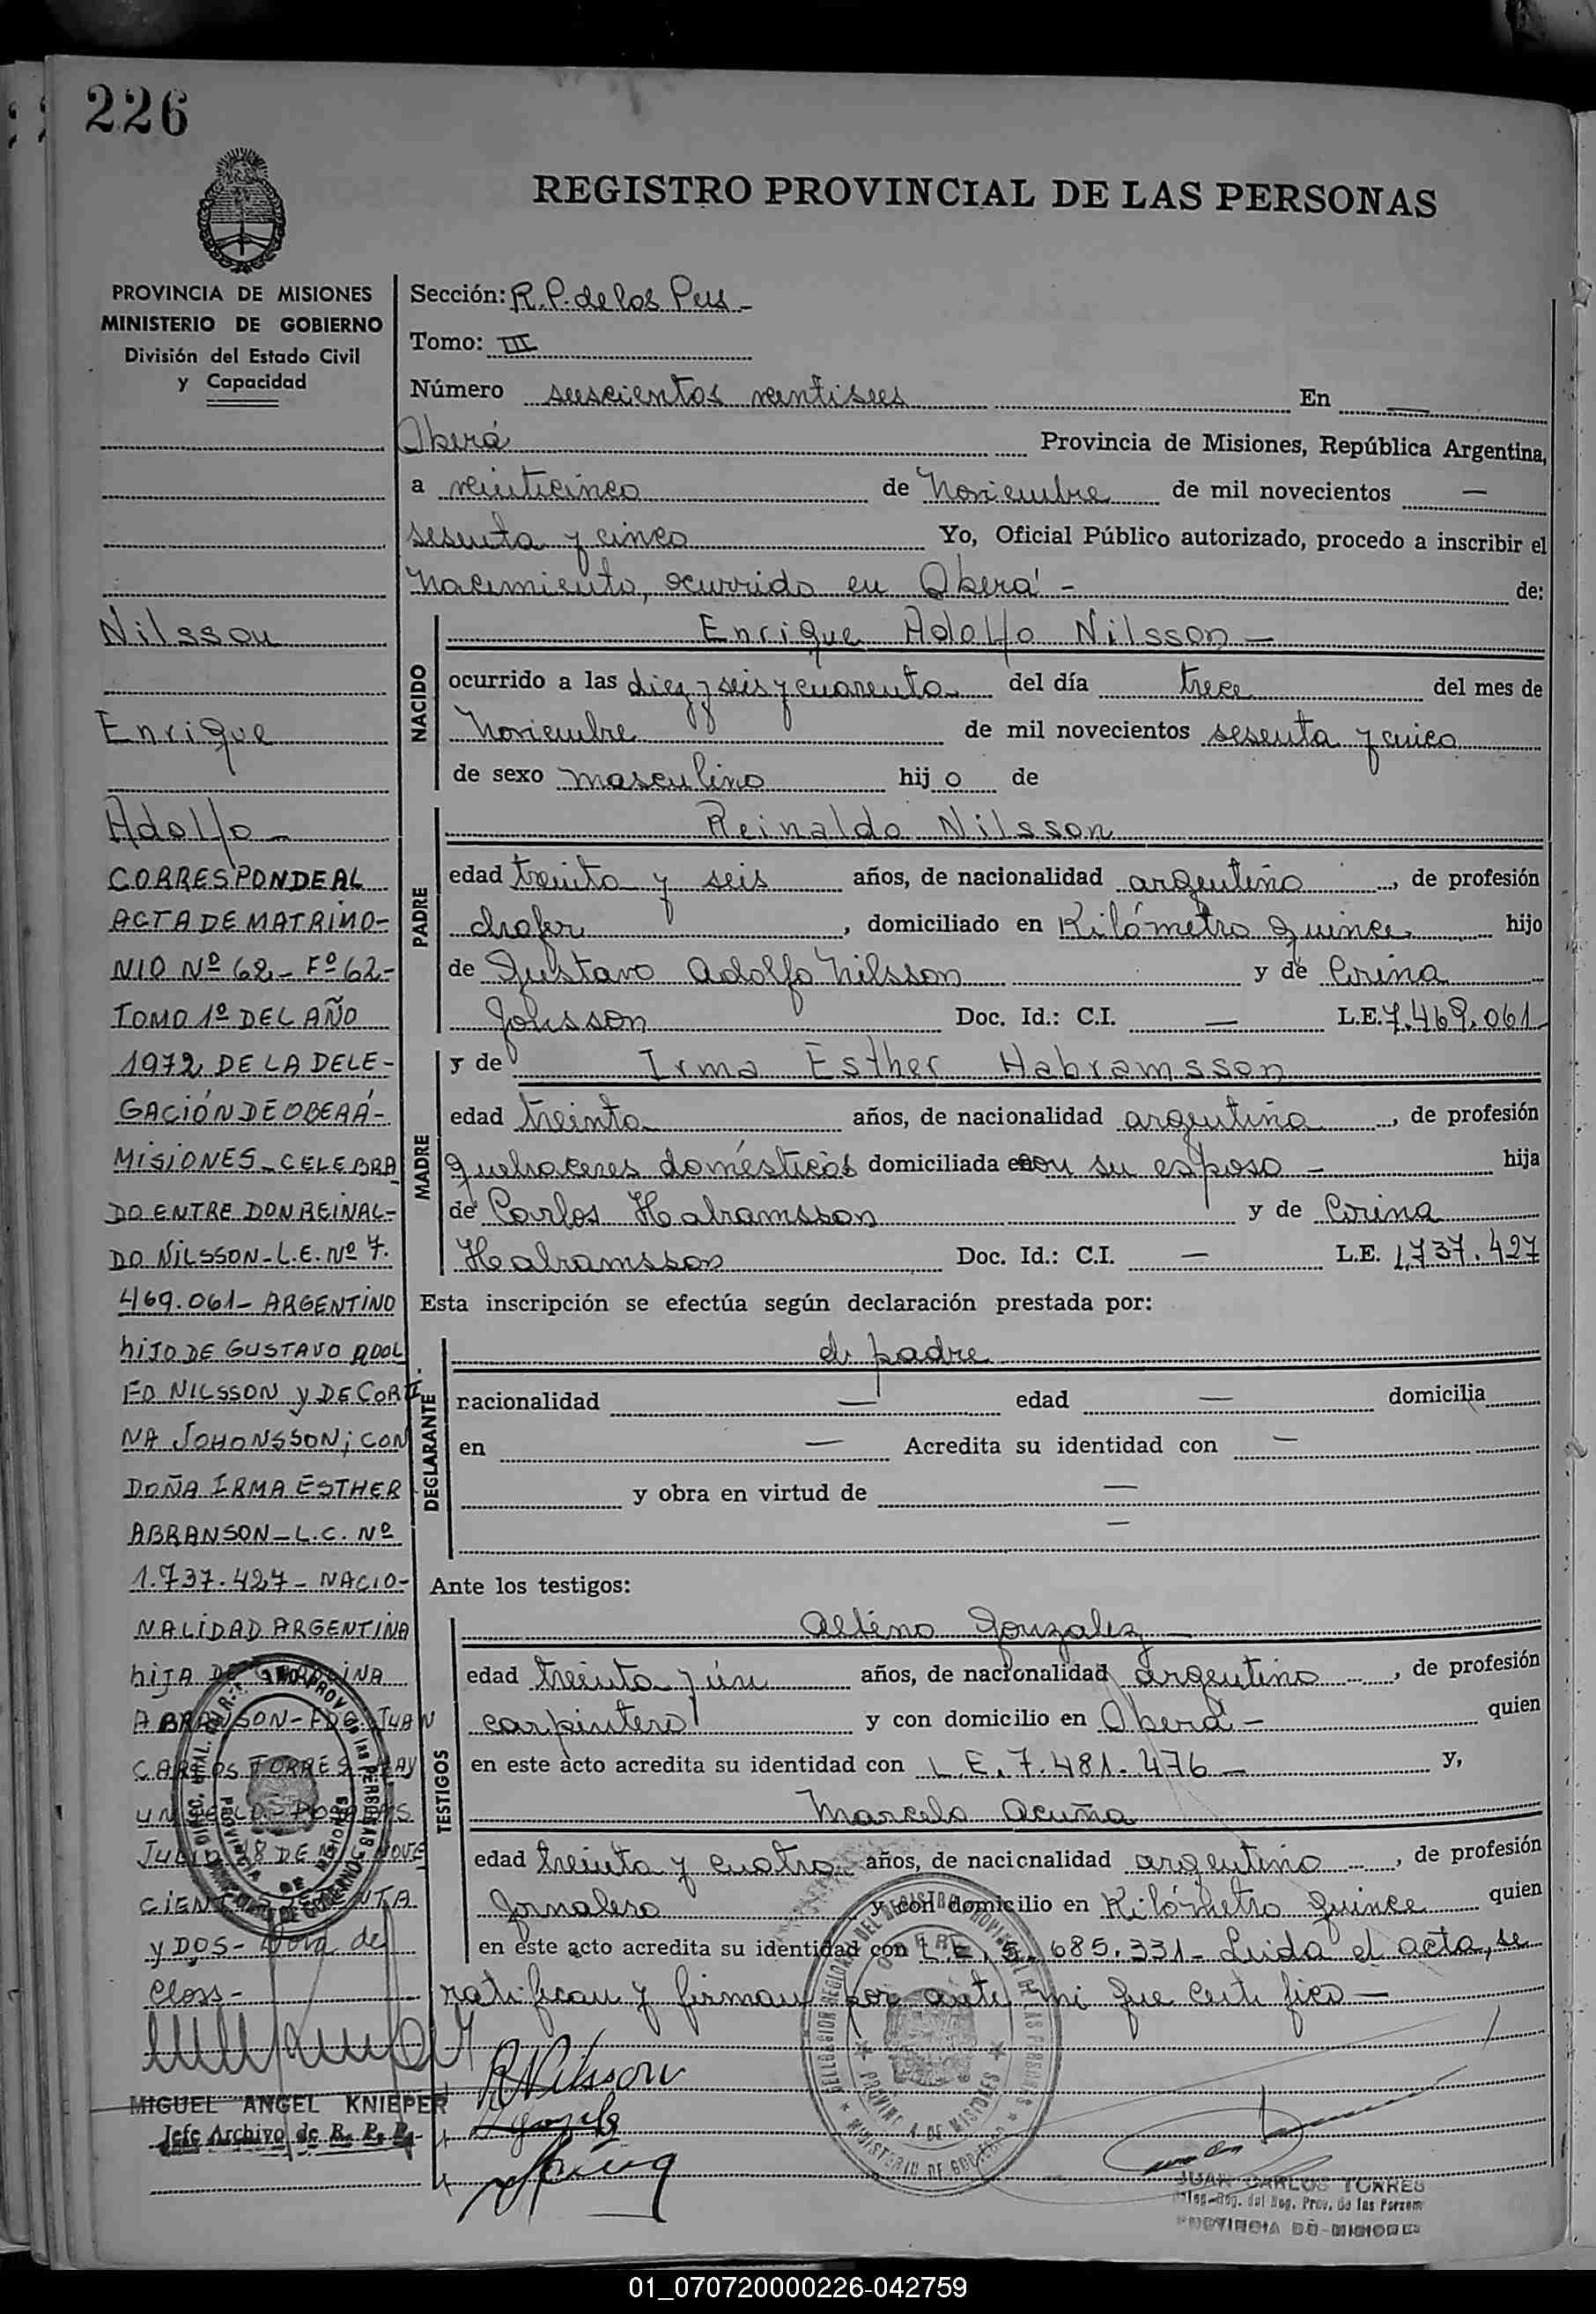 226
REGISTRO PROVINCIAL DE LAS PERSONAS
PROVINCIA DE MISIONES
MINISTERIO DE GOBIERNO
División del Estado Civil
y Capacidad
Nilsson
Enrique
Adolfo
CORRESPONDE AL
ACTA DE MATRIMO-
NIO Nº 62- Fº 62-
TOMO 1º DEL AÑO
1972, DE LA DELE-
GACIÓN DE OBERÁ-
MISIONES - CELEBRA
DO ENTRE DON REINAL-
DO NILSSON - L.E. Nº 7.
469.061 - ARGENTINO
HIJO DE GUSTAVO ADOL
FO NILSSON Y DE CORI
NA JOHONSSON; CON
DOÑA IRMA ESTHER
ABRANSON - L.C. Nº
1.737.427 - NACIO-
NALIDAD ARGENTINA
HIJA DE
JUAN
CARLOS TORRES HAY
UN SELLO -
JULIO 18 DE MIL NOVE
CIENTOS SETENTA
Y DOS -
Closs -
MIGUEL ANGEL KNIEPER
Jefe Archivo de R. P. P.
Sección: R. P. de las Pers -
Tomo: III
Número seiscientos ventiseis En —
Oberá Provincia de Misiones, República Argentina,
a veinticinco de Noviembre de mil novecientos —
sesenta y cinco Yo, Oficial Público autorizado, procedo a inscribir el
Nacimiento, ocurrido en Oberá - de:
NACIDO
Enrique Adolfo Nilsson —
ocurrido a las diez y seis y cuarenta del día trece del mes de
Noviembre de mil novecientos sesenta y cinco
de sexo masculino hij o de
PADRE
Reinaldo Nilsson
edad treinta y seis años, de nacionalidad argentino, de profesión
chofer, domiciliado en Kilómetro quince hijo
de Gustavo Adolfo Nilsson y de Corina
Johsson Doc. Id.: C.I. — L.E. 7.469.061
MADRE
y de Irma Esther Habramsson
edad treinta años, de nacionalidad argentina, de profesión
quehaceres domésticos domiciliada con su esposo — hija
de Carlos Habramsson y de Corina
Habramsson Doc. Id.: C.I. — L.E. 1.737.427
Esta inscripción se efectúa según declaración prestada por:
DECLARANTE
el padre
nacionalidad — edad — domicilia
en — Acredita su identidad con —
y obra en virtud de —
—
Ante los testigos:
TESTIGOS
Gonzalez —
edad treinta y ún años, de nacionalidad argentino, de profesión
carpintero y con domicilio en Oberá — quien
en este acto acredita su identidad con L.E. 7.481.476 — y,
Marcelo Acuña
edad treinta y cuatro años, de nacionalidad argentino, de profesión
Jornalero y con domicilio en Kilómetro quince quien
en este acto acredita su identidad con L.E. 685.331 - Leida el acta, se
ratifican y firman por ante mi que certifico —
R Nilsson
JUAN CARLOS TORRES
Deleg. Reg. del Reg. Prov. de las Person
PROVINCIA DE MISIONES
DELEGACION REGIONAL DEL REGISTRO PROVINCIAL DE LAS PERSONAS
OBERA
PROVINCIA DE MISIONES
MINISTERIO DE GOBIERNO
01_070720000226-042759